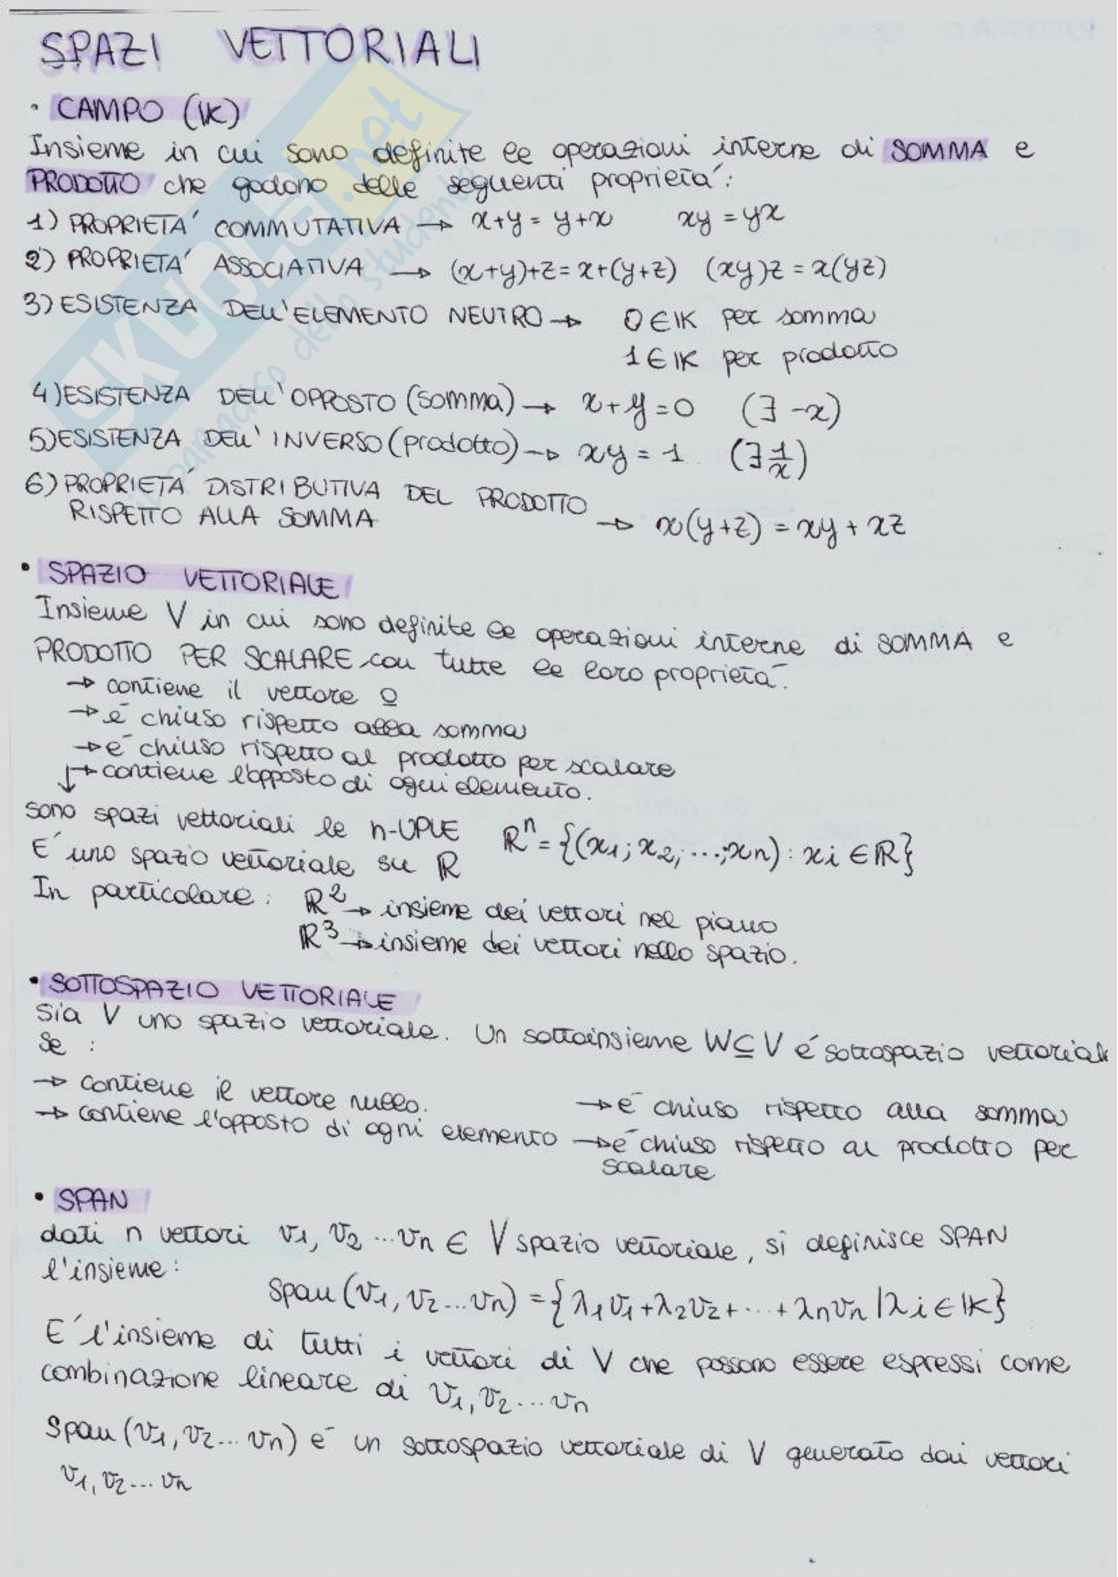 SPAZI VETTORIALI
• CAMPO (K)
Insieme in cui sono definite le operazioni interne di SOMMA e
PRODOTTO che godono delle seguenti proprietà:
1) PROPRIETA' COMMUTATIVA → x+y = y+x xy = yx
2) PROPRIETA' ASSOCIATIVA → (x+y)+z = x+(y+z) (xy)z = x(yz)
3) ESISTENZA DELL'ELEMENTO NEUTRO → 0 ∈ K per somma
1 ∈ K per prodotto
4) ESISTENZA DELL'OPPOSTO (somma) → x+y=0 (∃ -x)
5) ESISTENZA DELL'INVERSO (prodotto) → xy = 1 (∃ 1/x)
6) PROPRIETA' DISTRIBUTIVA DEL PRODOTTO
RISPETTO ALLA SOMMA → x(y+z) = xy + xz
• SPAZIO VETTORIALE
Insieme V in cui sono definite le operazioni interne di SOMMA e
PRODOTTO PER SCALARE con tutte le loro proprietà.
→ contiene il vettore 0
→ è chiuso rispetto alla somma
→ è chiuso rispetto al prodotto per scalare
→ contiene l'opposto di ogni elemento.
↓
sono spazi vettoriali le n-UPLE R^n = {(x1; x2; ...; xn) : xi ∈ R}
E' uno spazio vettoriale su R
In particolare: R^2 → insieme dei vettori nel piano
R^3 → insieme dei vettori nello spazio.
• SOTTOSPAZIO VETTORIALE
Sia V uno spazio vettoriale. Un sottoinsieme W ⊆ V è sottospazio vettoriale
se :
→ contiene il vettore nullo. → è chiuso rispetto alla somma
→ contiene l'opposto di ogni elemento → è chiuso rispetto al prodotto per
scalare
• SPAN
dati n vettori v1, v2 ... vn ∈ V spazio vettoriale, si definisce SPAN
l'insieme:
Span (v1, v2 ... vn) = {λ1v1+λ2v2+ ... + λnvn | λi ∈ K}
E' l'insieme di tutti i vettori di V che possono essere espressi come
combinazione lineare di v1, v2 ... vn
Span (v1, v2 ... vn) è un sottospazio vettoriale di V generato dai vettori
v1, v2 ... vn
SKUOLA.net